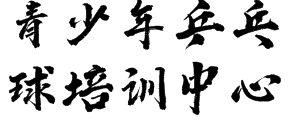 青少年乒乓
球培训中心